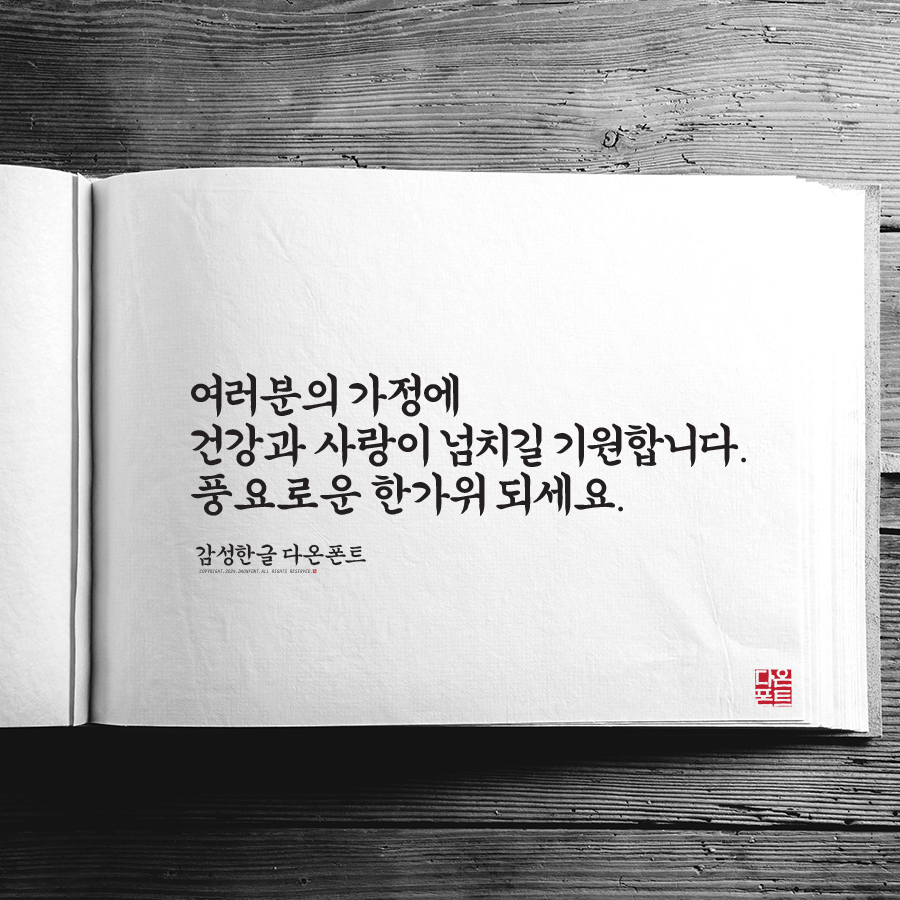 여러분의 가정에
건강과 사랑이 넘치길 기원합니다.
풍요로운 한가위 되세요.
감성한글 다온폰트
COPYRIGHT.2024.DAONFONT.ALL RIGHTS RESERVED.
다온
폰트